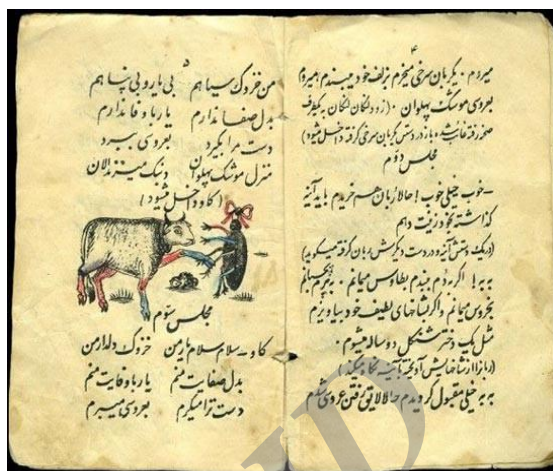 ۴
میروم. یکربان سرخی میخرم بزلف خود میبندم میروم
بعروسی موشک پهلوان. (زود لنگان لنگان به یکطرف
صحنه رفته غایب شده باز در دستش ربان سرخی گرفته داخل میشود)
مجلس دوّم
- خوب خیلی خوب! حالا ربان هم خریدم باید آینه
گذاشته بخود زینت دهم
(در یک دستش آینه و در دست دیگرش ربان گرفته میگوید)
به به! اگر دُم ببندم بطاوس میمانم.
بخروس میمانم واگر بشاخهای لطیف خود بیاویزم
مثل یک دختر خوشگل دو ساله میشوم.
(ربانرا از شاخهایش آویخته بآینه نگاه میکند)
به به خیلی مقبول گردیدم حالا لایق رفتن عروسی شدم
۵
من خزوک سیاهم بی یار و بی پناهم
بدل صفا ندارم یار با وفا ندارم
دست مرا بگیرد بعروسی ببرد
منزل موشک پهلوان دنبک میزند لالان
(گاو داخل میشود)
مجلس سوّم
گاو- سلام سلام یار من خزوک دلدار من
بدل صفایت منم یار با وفایت منم
دست ترا میگیرم بعروسی میبرم